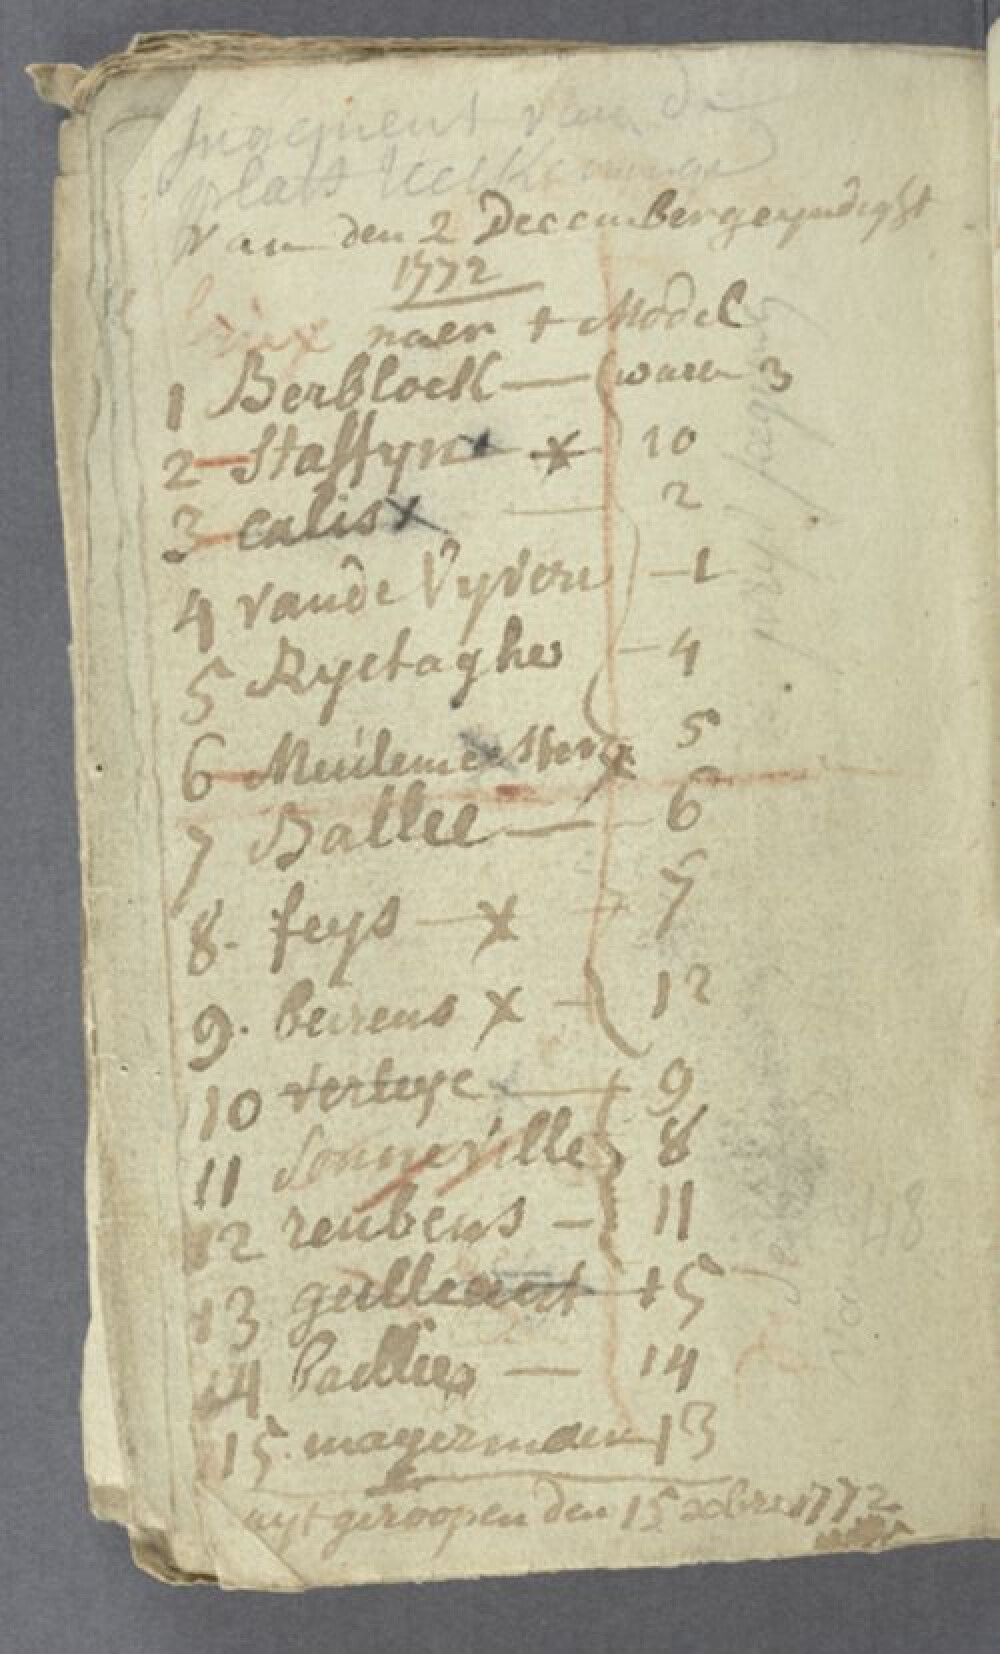 Jugement van de
plats
van den 2 Decembergeeyndight
1772
naer + Model
1 Berblock — waren 3
2 Staffyn x x 10
3 calis x 2
4 vande Vyvere — 1
5 Ryctaghe — 4
6 Meulemeester x 5
7 Ballee — 6
8. feys — x 7
9. beirens x — 12
10 verbeye — 9
11 Sonneville 8
12 reubens — 11
13 +5
14 Paellies — 14
15. mayerman 13
uyt geroopen den 15 xbre 1772
48